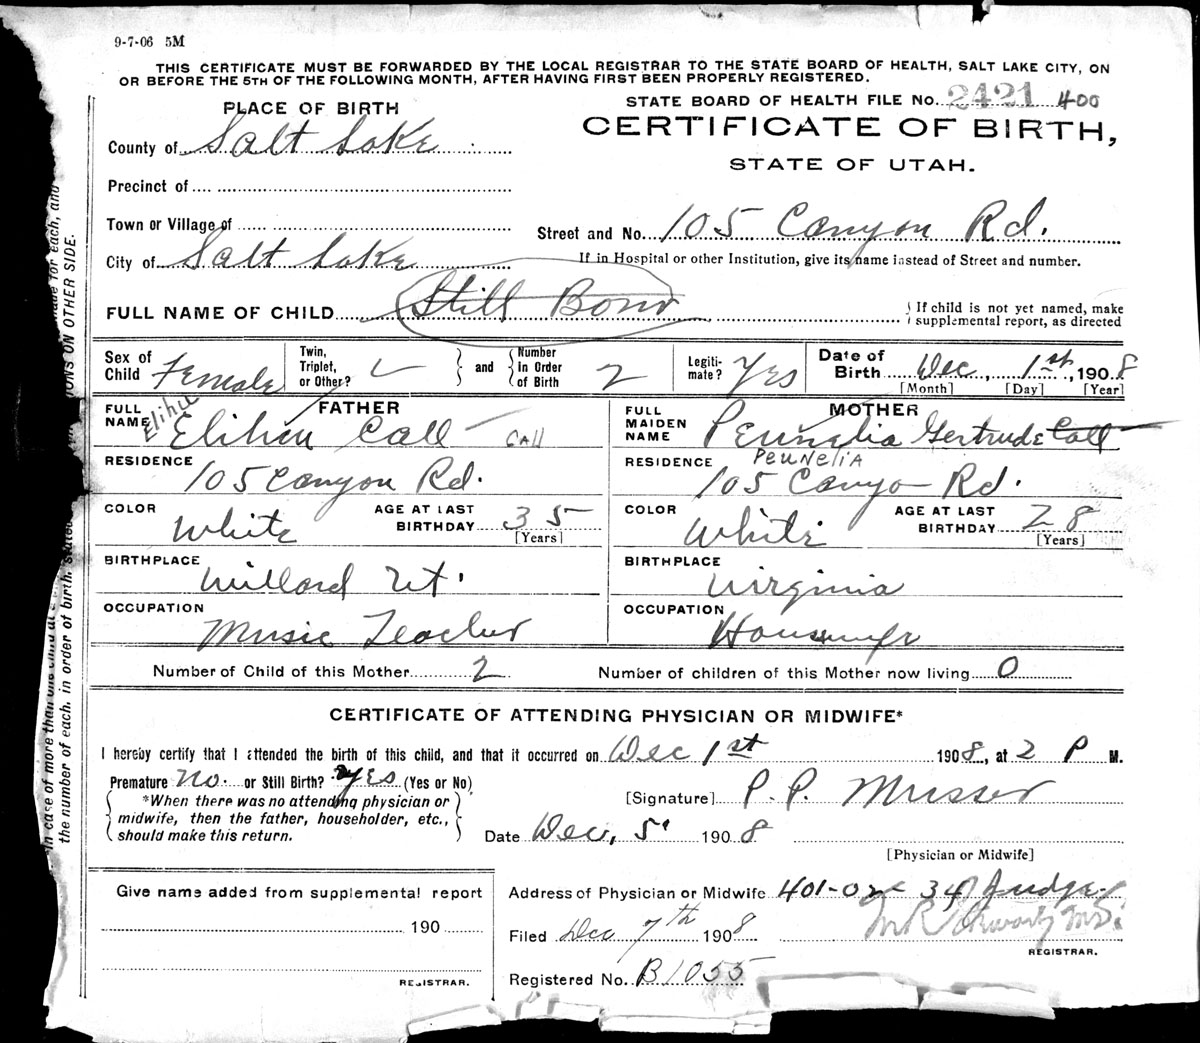 9-7-06 5M
THIS CERTIFICATE MUST BE FORWARDED BY THE LOCAL REGISTRAR TO THE STATE BOARD OF HEALTH, SALT LAKE CITY, ON
OR BEFORE THE 5TH OF THE FOLLOWING MONTH, AFTER HAVING FIRST BEEN PROPERLY REGISTERED.
STATE BOARD OF HEALTH FILE No. 2421 400
CERTIFICATE OF BIRTH,
STATE OF UTAH.
PLACE OF BIRTH
County of Salt Lake
Precinct of
Town or Village of
City of Salt Lake
Street and No. 105 Canyon Rd.
If in Hospital or other Institution, give its name instead of Street and number.
FULL NAME OF CHILD Still Born
If child is not yet named, make
supplemental report, as directed
Sex of Child Female
Twin, Triplet, or Other?
and
Number In Order of Birth 2
Legiti-mate? Yes
Date of Birth Dec, 1st, 1908
[Month] [Day] [Year]
FATHER
FULL NAME Elihu Elihu Call Call
RESIDENCE 105 Canyon Rd.
COLOR White
AGE AT LAST BIRTHDAY 35
[Years]
BIRTHPLACE Willard Ut.
OCCUPATION Music Teacher
MOTHER
FULL MAIDEN NAME Peunelia Gertrude Call
PeuNeliA
RESIDENCE 105 Canyo Rd.
COLOR White
AGE AT LAST BIRTHDAY 28
[Years]
BIRTHPLACE Virginia
OCCUPATION Housewife
Number of Child of this Mother 2
Number of children of this Mother now living 0
CERTIFICATE OF ATTENDING PHYSICIAN OR MIDWIFE*
I hereby certify that I attended the birth of this child, and that it occurred on Dec 1st 1908, at 2 P M.
Premature no. or Still Birth? yes (Yes or No)
*When there was no attending physician or
midwife, then the father, householder, etc.,
should make this return.
[Signature] P. P. Musser
Date Dec, 5 1908
[Physician or Midwife]
Give name added from supplemental report
190
REGISTRAR.
Address of Physician or Midwife 401-02- 34 Judge
Filed Dec 7th 1908
REGISTRAR.
Registered No. B1055
In case of more than one child at
the number of each, in order of birth, stated
made for each, and
ONS ON OTHER SIDE.